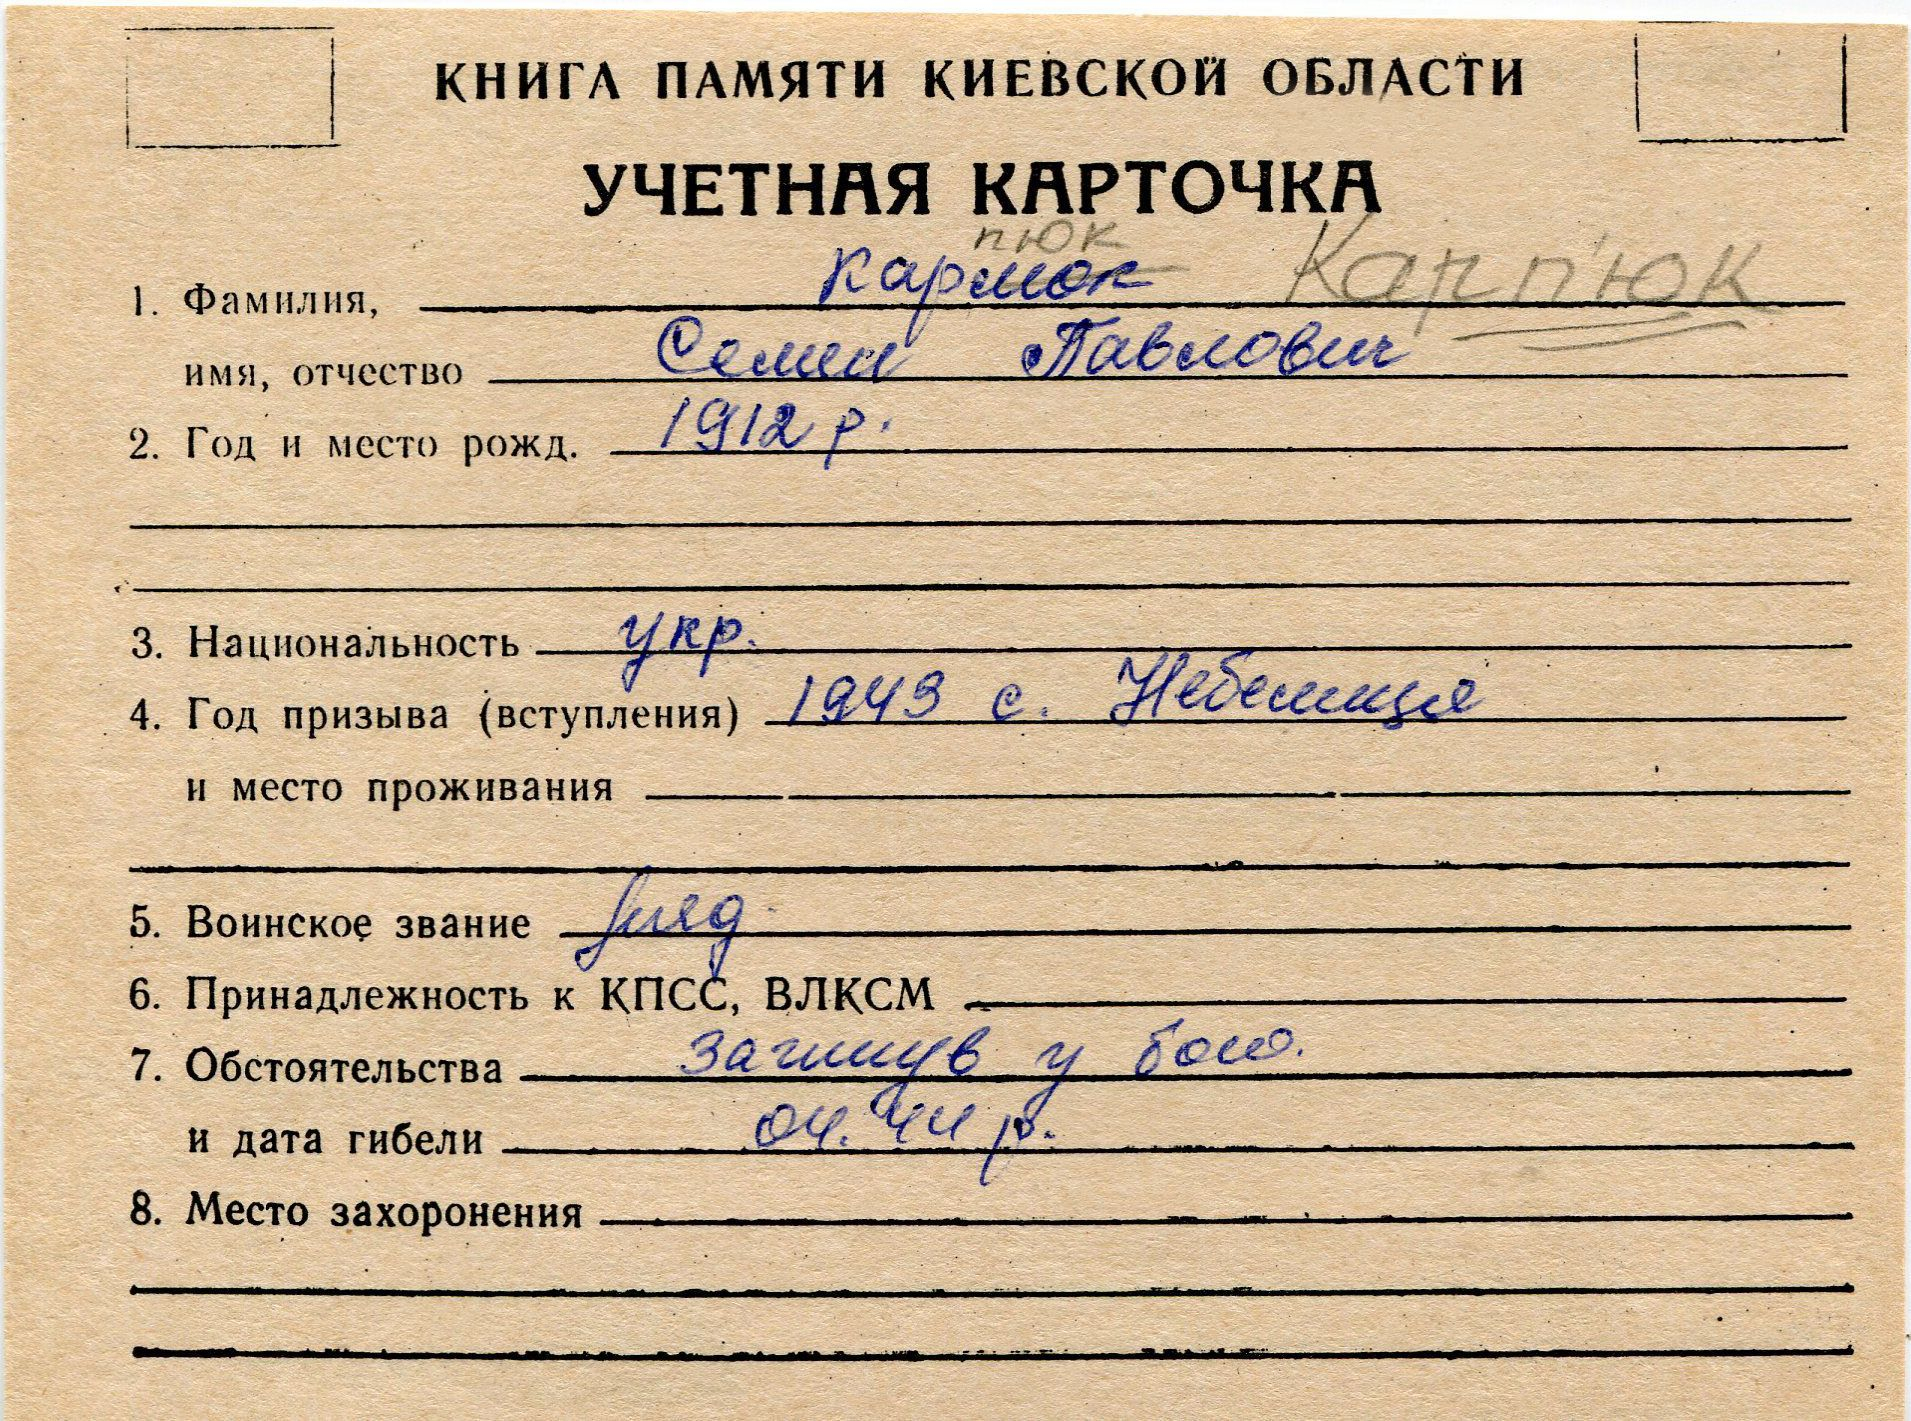 КНИГА ПАМЯТИ КИЕВСКОЙ ОБЛАСТИ
УЧЕТНАЯ КАРТОЧКА
пюк
1. Фамилия, Кармюк Карп'юк
имя, отчество Семен Павлович
2. Год и место рожд. 1912 р.
3. Национальность укр.
4. Год призыва (вступления) 1943 с. Небелиця
и место проживания
5. Воинское звание ряд.
6. Принадлежность к КПСС, ВЛКСМ
7. Обстоятельства загинув у бою.
и дата гибели 04.44 р.
8. Место захоронения